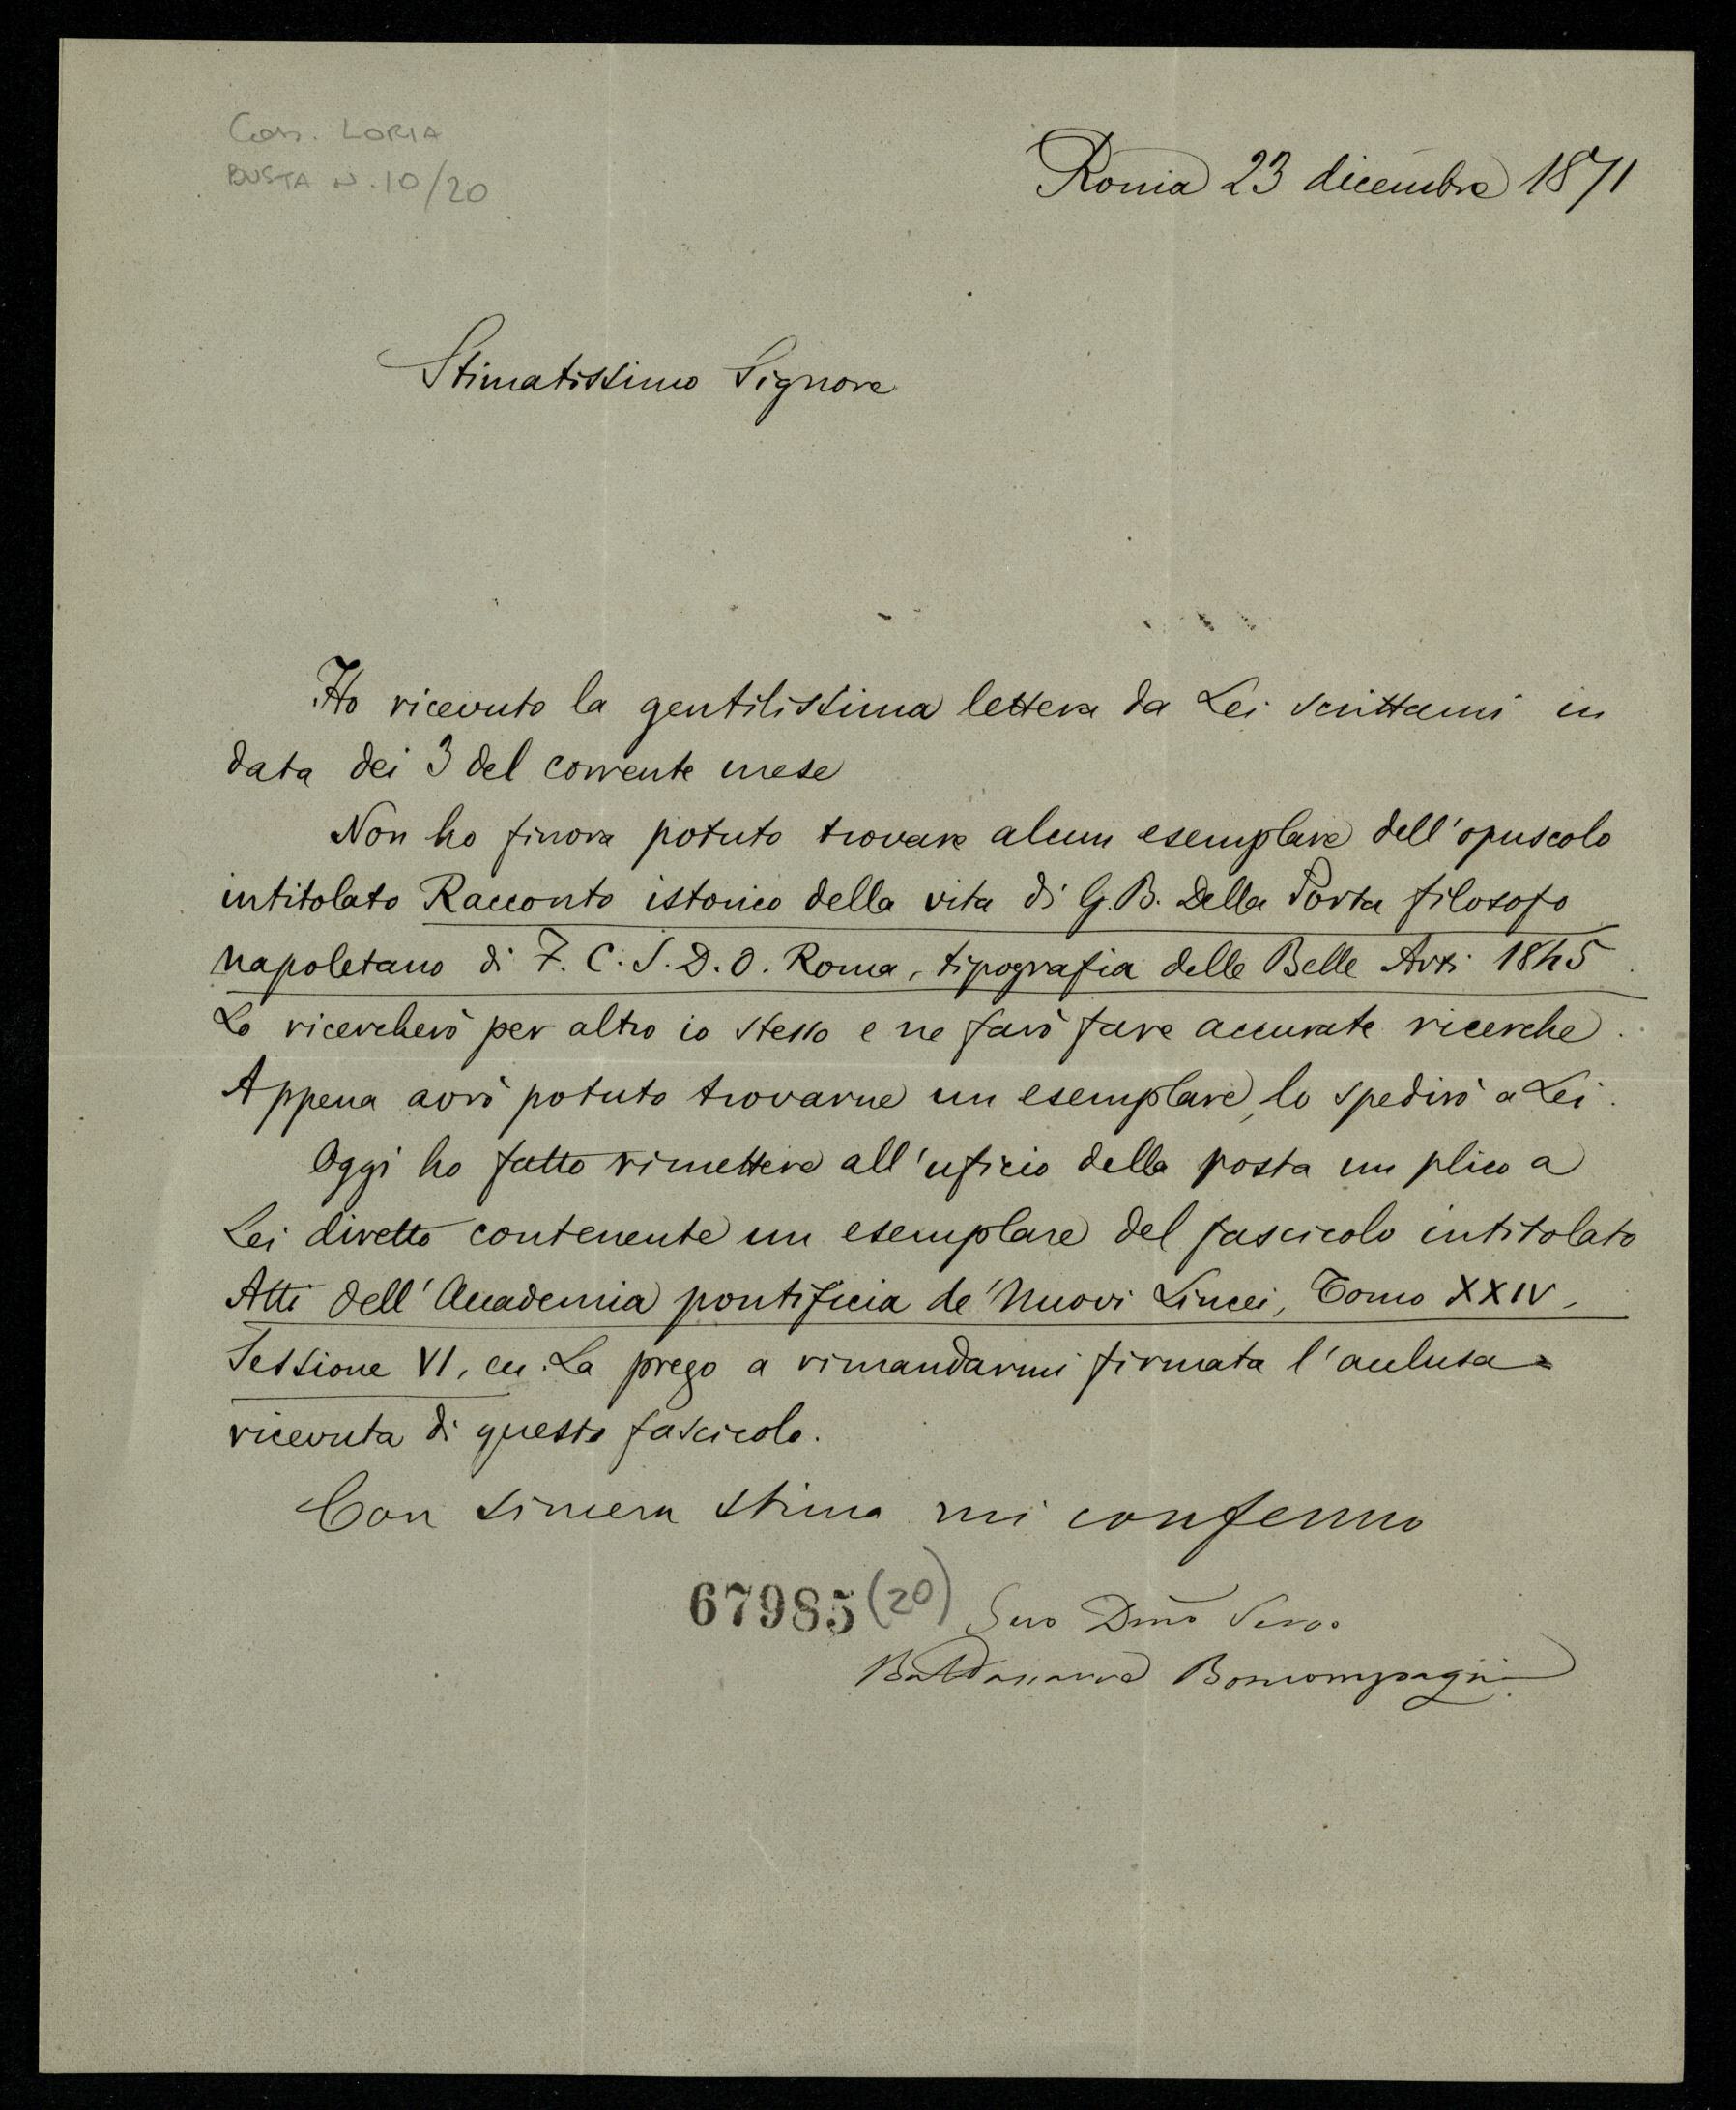 Corr. LORIA
BUSTA N. 10/20
Roma 23 dicembre 1871
Stimatissimo Signore
Ho ricevuto la gentilissima lettera da Lei scrittami in
data dei 3 del corrente mese
Non ho finora potuto trovare alcun esemplare dell'opuscolo
intitolato Racconto istorico della vita di G. B. Della Porta filosofo
napoletano di F. C. S. D. O. Roma, tipografia delle Belle Arti 1845
Lo ricercherò per altro io stesso e ne farò fare accurate ricerche.
Appena avrò potuto trovarne un esemplare, lo spedirò a Lei.
Oggi ho fatto rimettere all'uficio della posta un plico a
Lei diretto contenente un esemplare del fascicolo intitolato
Atti dell'Accademia pontificia de' Nuovi Lincei, Tomo XXIV,
Sessione VI, ec. La prego a rimandarmi firmata l'acclusa
ricevuta di questo fascicolo.
Con sincera stima mi confermo
67985 (20)
Suo Dmo Servo
Baldassarre Boncompagni